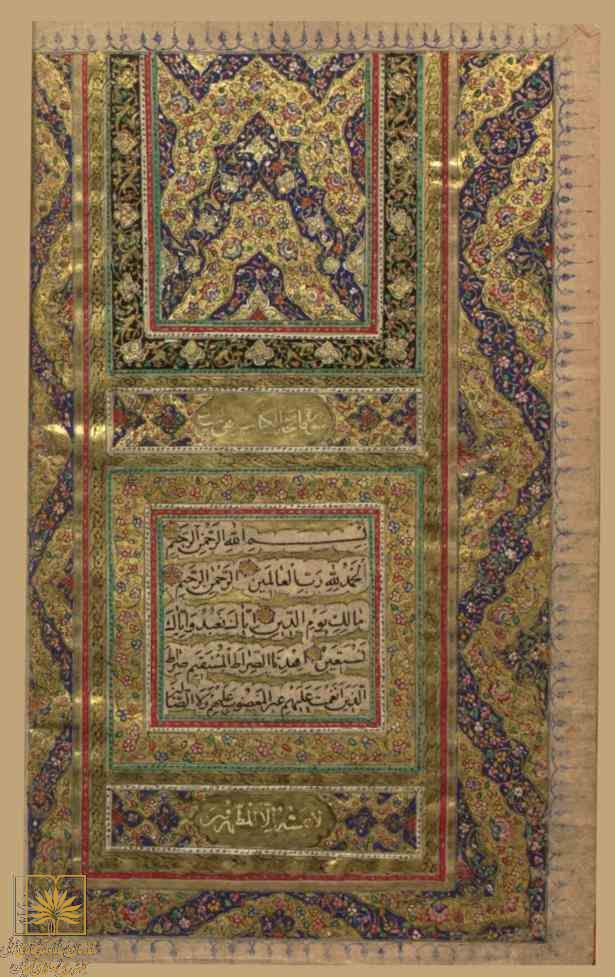 سورة فاتحة الكتاب
بسم الله الرحمن الرحيم
الحمد لله رب العالمين الرحمن الرحيم
مالك يوم الدين اياك نعبد واياك
نستعين اهدنا الصراط المستقيم صراط
الذين انعمت عليهم غير المغضوب عليهم ولا الضالين
لا يمسه الا المطهرون